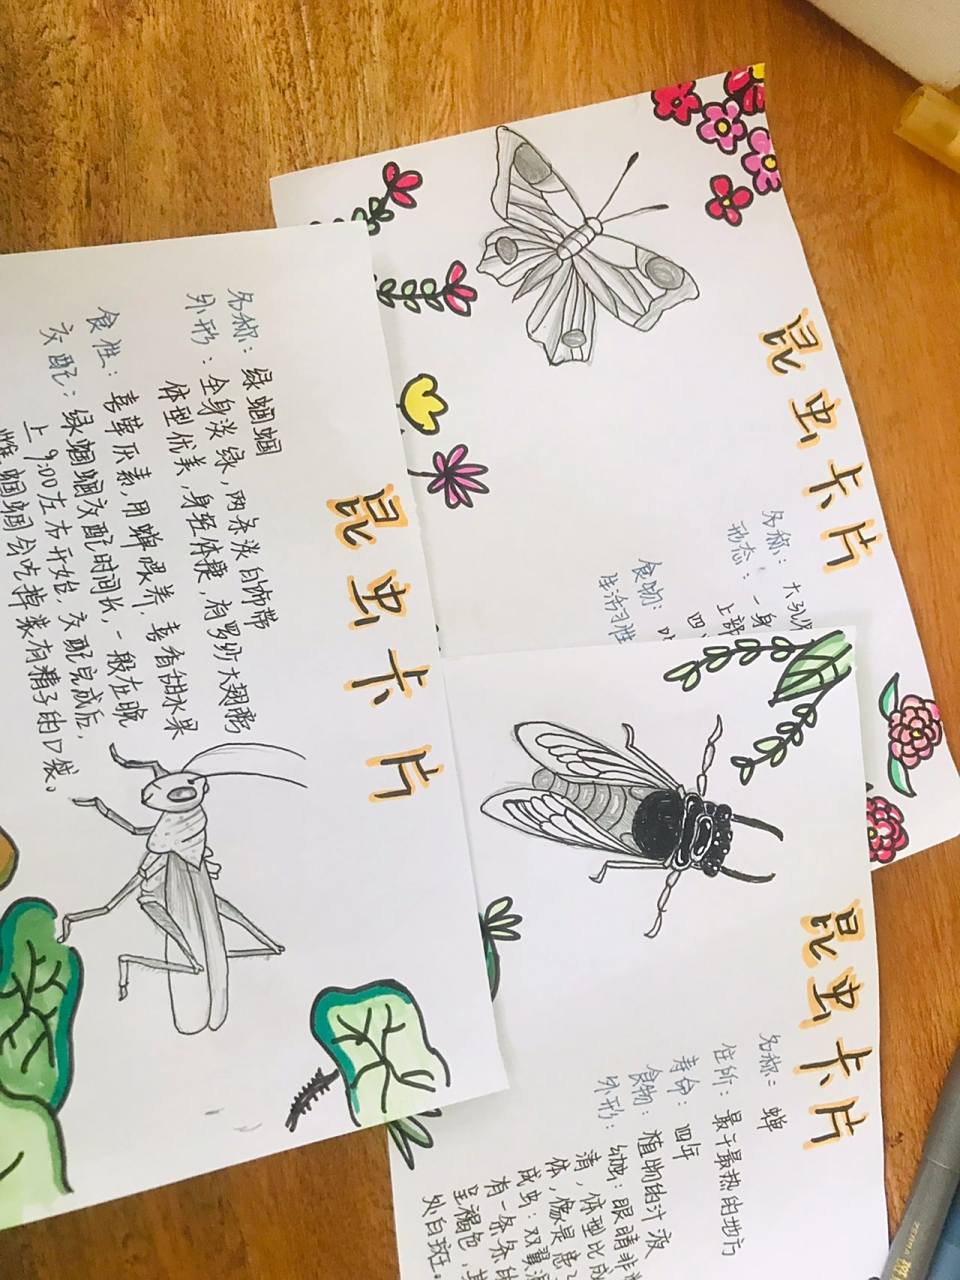 昆虫卡片
名称：绿蝈蝈
外形：全身淡绿，两条淡白饰带
体型优美，身轻体健，有罗纱大翅膀
食性：喜荤厌素，用蝉喂养，喜香甜水果
交配：绿蝈蝈交配时间长，一般在晚
上9:00左右开始，交配完成后，
雌蝈蝈会吃掉装有精子的口袋。
昆虫卡片
名称：
形态：一身
上部
四
食物：
生活习性
昆虫卡片
名称：蝉
住所：最干最热的地方
寿命：四年
食物：植物的汁液
外形：幼虫：眼睛非
清，体型比成
体，像是
成虫：双翼
有一条条的
呈福色，
处白斑。